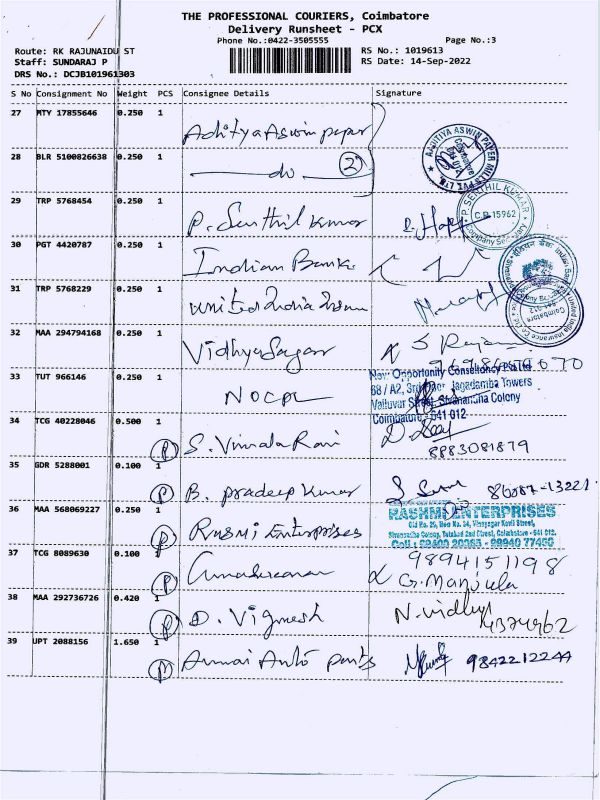 THE PROFESSIONAL COURIERS, Coimbatore
Delivery Runsheet - PCX
Phone No.:0422-3505555
Page No.:3
Route: RK RAJUNAIDU ST
RS No.: 1019613
Staff: SUNDARAJ P
RS Date: 14-Sep-2022
DRS No.: DCJB101961303
S No Consignment No Weight PCS Consignee Details Signature
27 MTY 17855646 0.250 1 Aditya Aswin paper
28 BLR 5100826638 0.250 1 do (2)
ADITIYA ASWIN PAPER MILLS PVT. LTD.
29 TRP 5768454 0.250 1 P. Senthil Kumar
P. SENTHIL KUMAR
C.P. 15962
30 PGT 4420787 0.250 1 Indian Bank
31 TRP 5768229 0.250 1 United India Insu
32 MAA 294794168 0.250 1 Vidhya Sagar
33 TUT 966146 0.250 1 NOCPL
New Opportunity Consultancy Pvt Ltd
68 / A2, 3rd Floor Jagadamba Towers
Valluvar Street, Sivanandha Colony
Coimbatore - 641 012
34 TCG 40228046 0.500 1 (P) S. Vimala Rani
8883081879
35 GDR 5288001 0.100 1 (P) B. Pradeep Kumar 86087-13221
36 MAA 568069227 0.250 1 (P) Rasmi Enterprises
RASHMI ENTERPRISES
37 TCG 8089630 0.100 1 (P)
9894151198
G. Manjula
38 MAA 292736726 0.420 1 (P) D. Vignesh N. vidhya
39 UPT 2088156 1.650 1 Annai Auto parts 9842212244